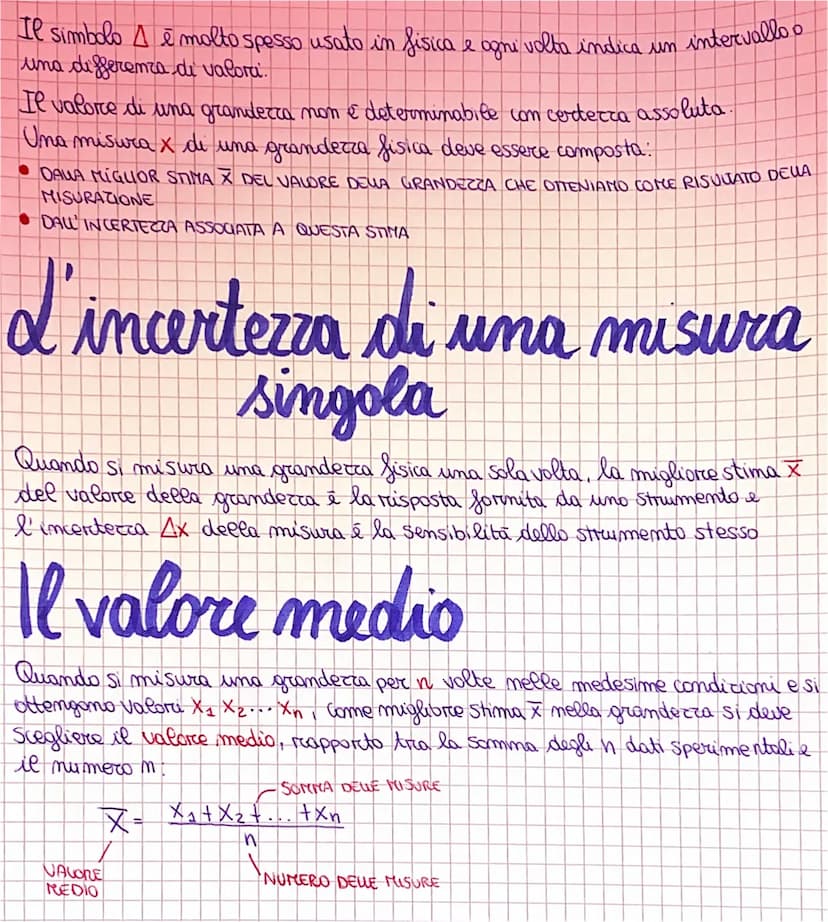 Il simbolo Δ è molto spesso usato in fisica e ogni volta indica un intervallo o
una differenza di valori.
Il valore di una grandezza non è determinabile con certezza assoluta.
Una misura x di una grandezza fisica deve essere composta:
• DALLA MIGLIOR STIMA x̅ DEL VALORE DELLA GRANDEZZA CHE OTTENIAMO COME RISULTATO DELLA
MISURAZIONE
• DALL'INCERTEZZA ASSOCIATA A QUESTA STIMA
L'incertezza di una misura
singola
Quando si misura una grandezza fisica una sola volta, la migliore stima x̅
del valore della grandezza è la risposta fornita da uno strumento e
l'incertezza Δx della misura è la sensibilità dello strumento stesso
Il valore medio
Quando si misura una grandezza per n volte nelle medesime condizioni e si
ottengono valori x₁ x₂... xₙ, come migliore stima x̅ nella grandezza si deve
scegliere il valore medio, rapporto tra la somma degli n dati sperimentali e
il numero n:
SOMMA DELLE MISURE
x̅ = x₁+x₂+...+xₙ
n
VALORE
MEDIO
NUMERO DELLE MISURE